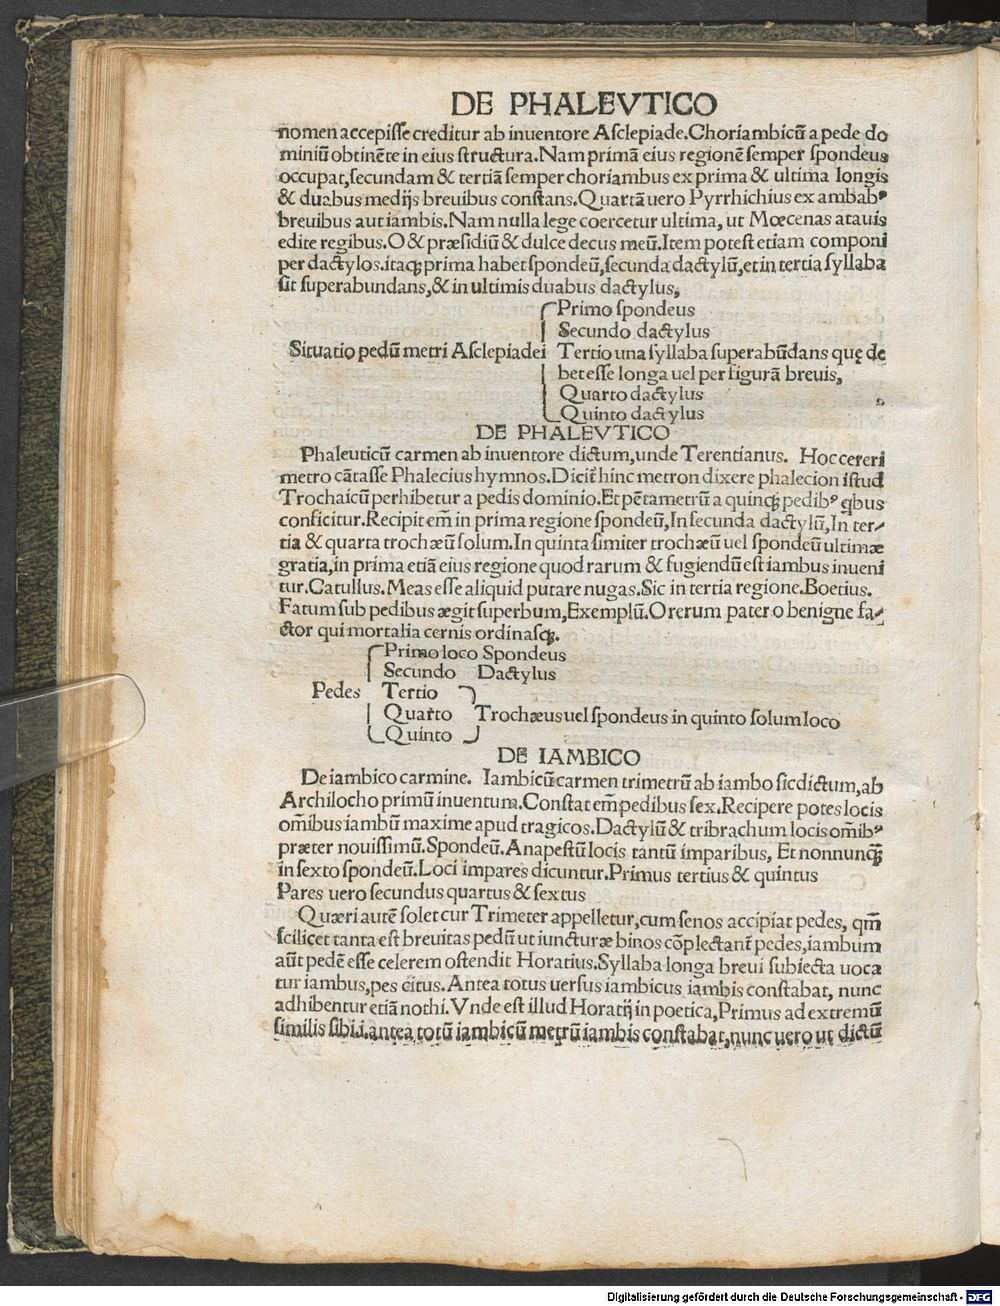 DE PHALEVTICO
nomen accepisse creditur ab inuentore Asclepiade.Choriambicū a pede do
miniū obtinēte in eius structura.Nam primā eius regionē semper spondeus
occupat,secundam & tertiā semper choriambus ex prima & ultima longis
& duabus medijs breuibus constans.Quartā uero Pyrrhichius ex ambabꝰ
breuibus aut iambis.Nam nulla lege coercetur ultima, ut Mœcenas atauis
edite regibus.O & præsidiū & dulce decus meū.Item potest etiam componi
per dactylos.itaqꝫ prima habet spondeū,secunda dactylū,et in tertia syllaba
sit superabundans,& in ultimis duabus dactylus,
Primo spondeus
Secundo dactylus
Situatio pedū metri Asclepiadei Tertio una syllaba superabūdans quę de
bet esse longa uel per figurā breuis,
Quarto dactylus
Quinto dactylus
DE PHALEVTICO
Phaleuticū carmen ab inuentore dictum,unde Terentianus. Hoc cereri
metro cātasse Phalecius hymnos.Dicit̄ hinc metron dixere phalecion istud
Trochaicū perhibetur a pedis dominio.Et pētametrū a quinqꝫ pedibꝰ qbus
conficitur.Recipit em̄ in prima regione spondeū,In secunda dactylū,In ter-
tia & quarta trochæū solum.In quinta simiter trochæū uel spondeū ultimæ
gratia,in prima etiā eius regione quod rarum & fugiendū est iambus inueni
tur.Catullus.Meas esse aliquid putare nugas.Sic in tertia regione.Boetius.
Fatum sub pedibus ægit superbum,Exemplū.O rerum pater o benigne fa-
ctor qui mortalia cernis ordinasqꝫ.
Primo loco Spondeus
Secundo Dactylus
Pedes Tertio
Quarto Trochæus uel spondeus in quinto solum loco
Quinto
DE IAMBICO
De iambico carmine. Iambicū carmen trimetrū ab iambo sic dictum,ab
Archilocho primū inuentum.Constat em̄ pedibus sex.Recipere potes locis
om̄ibus iambū maxime apud tragicos.Dactylū & tribrachum locis om̄ibꝰ
præter nouissimū.Spondeū.Anapestū locis tantū imparibus, Et nonnunqꝫ̄
in sexto spondeū.Loci impares dicuntur.Primus tertius & quintus
Pares uero secundus quartus & sextus
Quæri autē solet cur Trimeter appelletur,cum senos accipiat pedes, qm̄
scilicet tanta est breuitas pedū ut iuncturæ binos cōplectant̄ pedes,iambum
aūt pedē esse celerem ostendit Horatius.Syllaba longa breui subiecta uoca
tur iambus,pes citus.Antea totus uersus iambicus iambis constabat, nunc
adhibentur etiā nothi.Vnde est illud Horatij in poetica,Primus ad extremū
similis sibi.i.antea totū iambicū metrū iambis constabat,nunc uero ut dictū
Digitalisierung gefördert durch die Deutsche Forschungsgemeinschaft - DFG